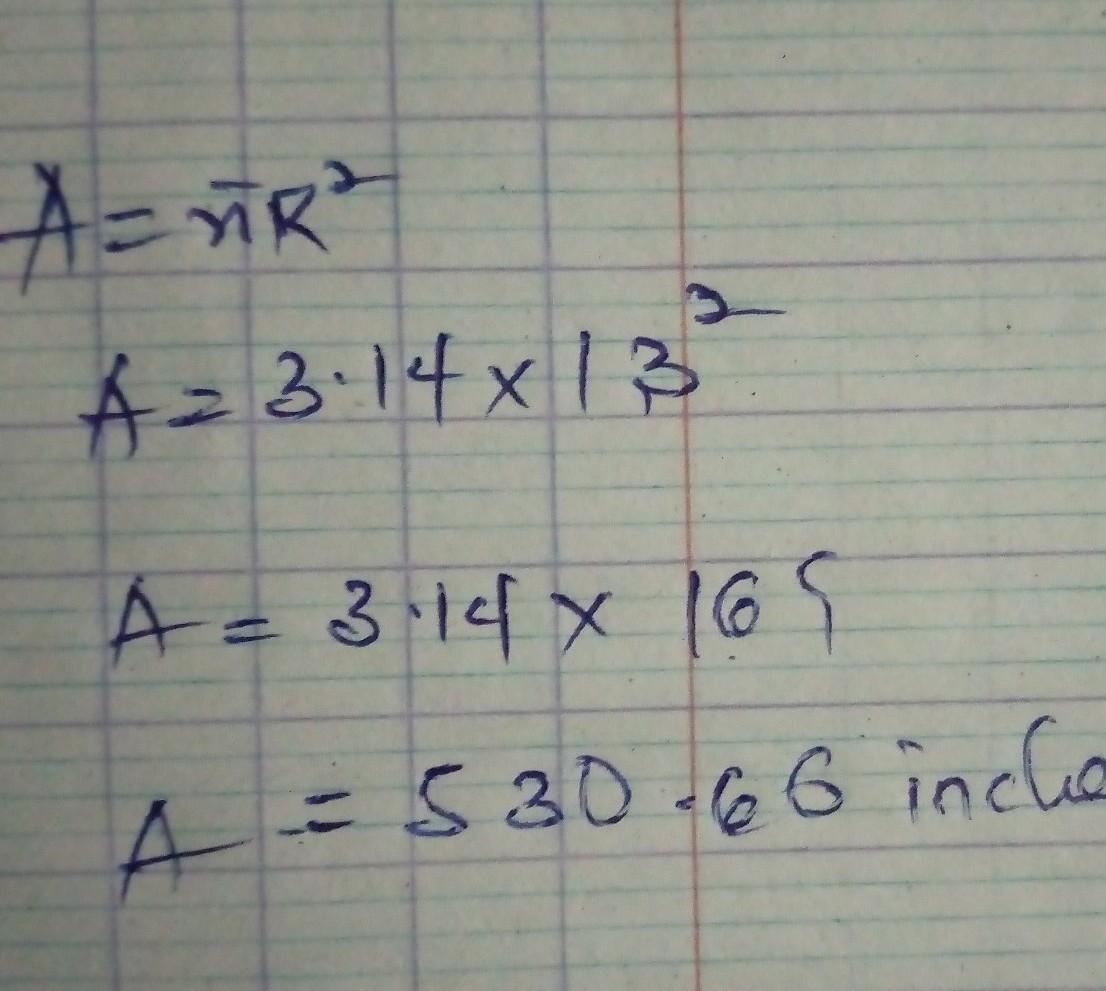 A = πR²
A = 3.14 x 13²
A = 3.14 x 169
A = 530.66 inche